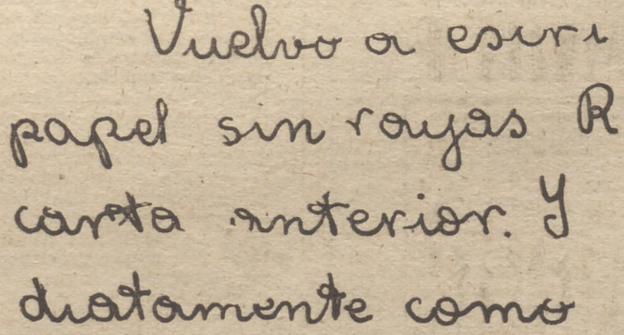 Vuelvo a escri
papel sin rayas R
carta anterior. Y
diatamente como